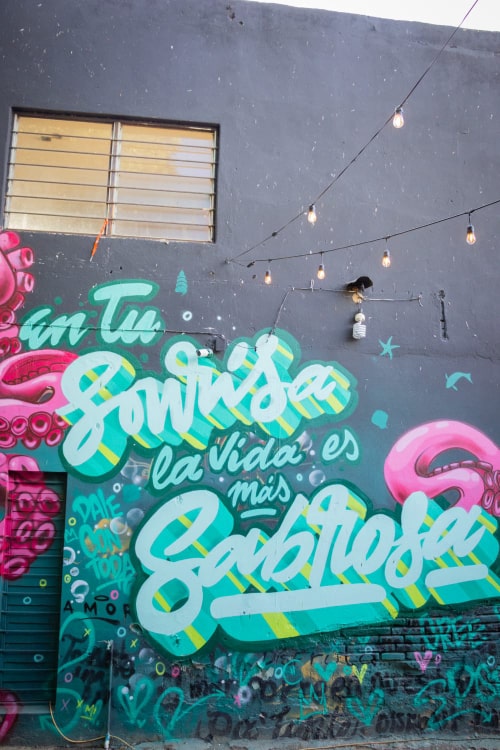 en Tu
Sonrisa
la Vida es
más
Sabrosa
DALE
CON
TODO
AMOR